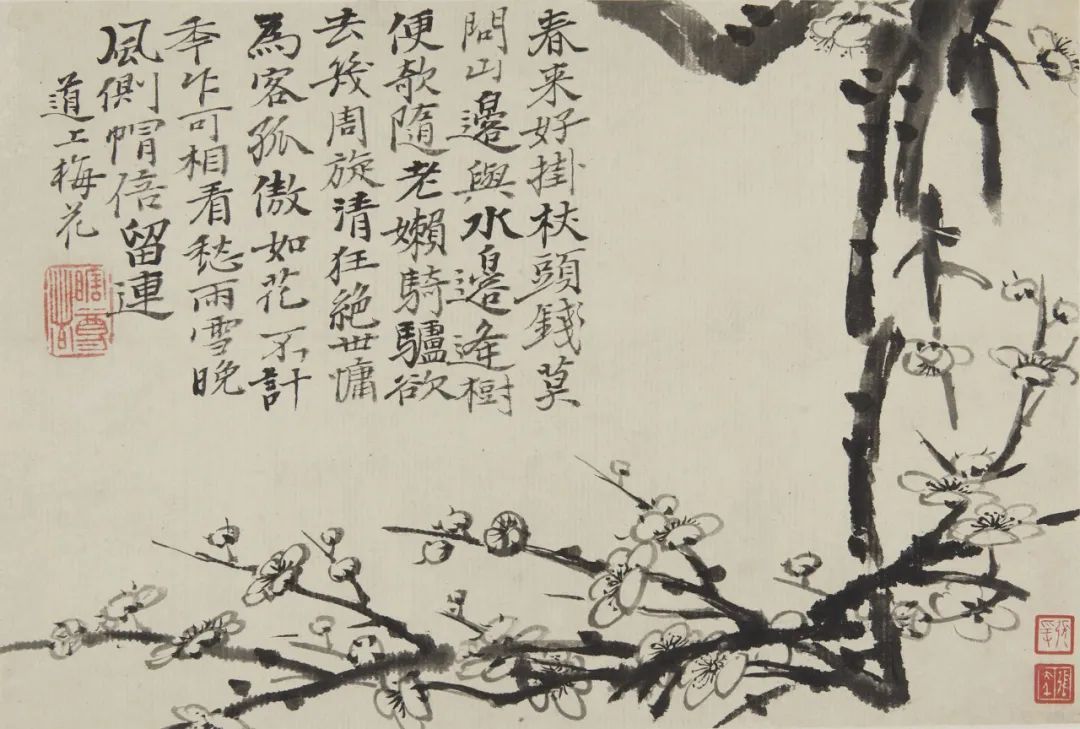 春来好掛杖頭錢莫
問山邊與水邊逢樹
便欹隨老嬾騎驢欲
去幾周旋清狂絕世慵
為客孤傲如花不計
秊乍可相看愁雨雪晚
風側帽倍留連
道上梅花
瞎尊